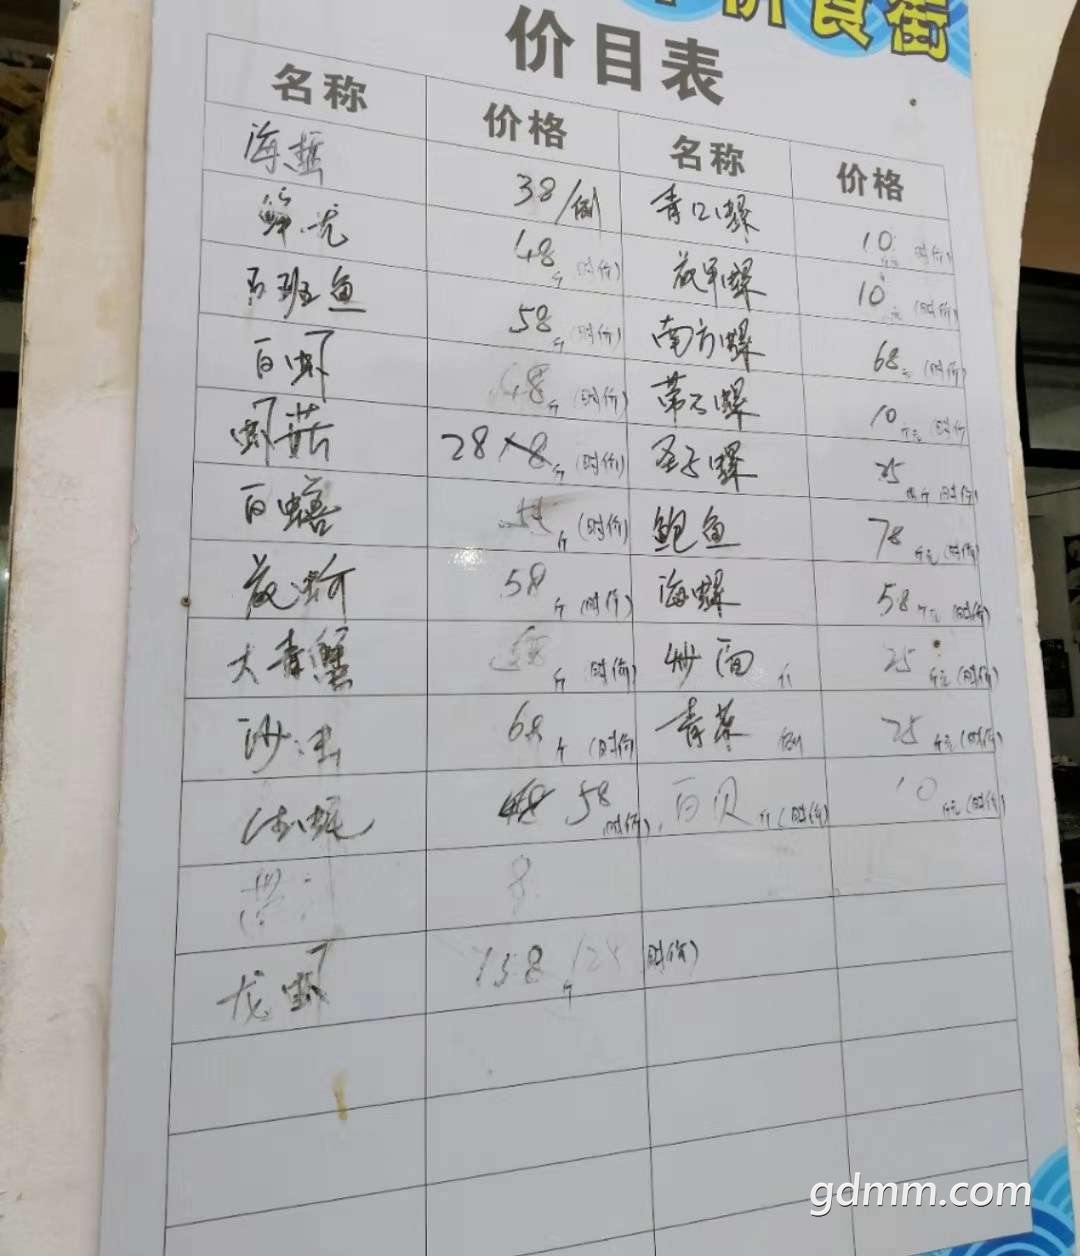 食街
价目表
名称 价格 名称 价格
海蜇 38/例 青口螺 10 (时价)
48斤 (时价) 花甲螺 10元 (时价)
石班鱼 58斤 (时价) 南方螺 68元 (时价)
白虾 48斤 (时价) 带子螺 10斤元 (时价)
虾菇 28 斤 (时价) 圣子螺 25 (时价)
白鳝 斤 (时价) 鲍鱼 78斤元 (时价)
花蚧 58斤 (时价) 海螺 58斤元 (时价)
大青蟹 斤 (时价) 炒面 25斤元 (时价)
沙虫 68斤 (时价) 青菜 例 25斤元 (时价)
58 时价) 白贝 斤 (时价) 10斤元 (时价)
8
龙虾 138斤 时价)
gdmm.com